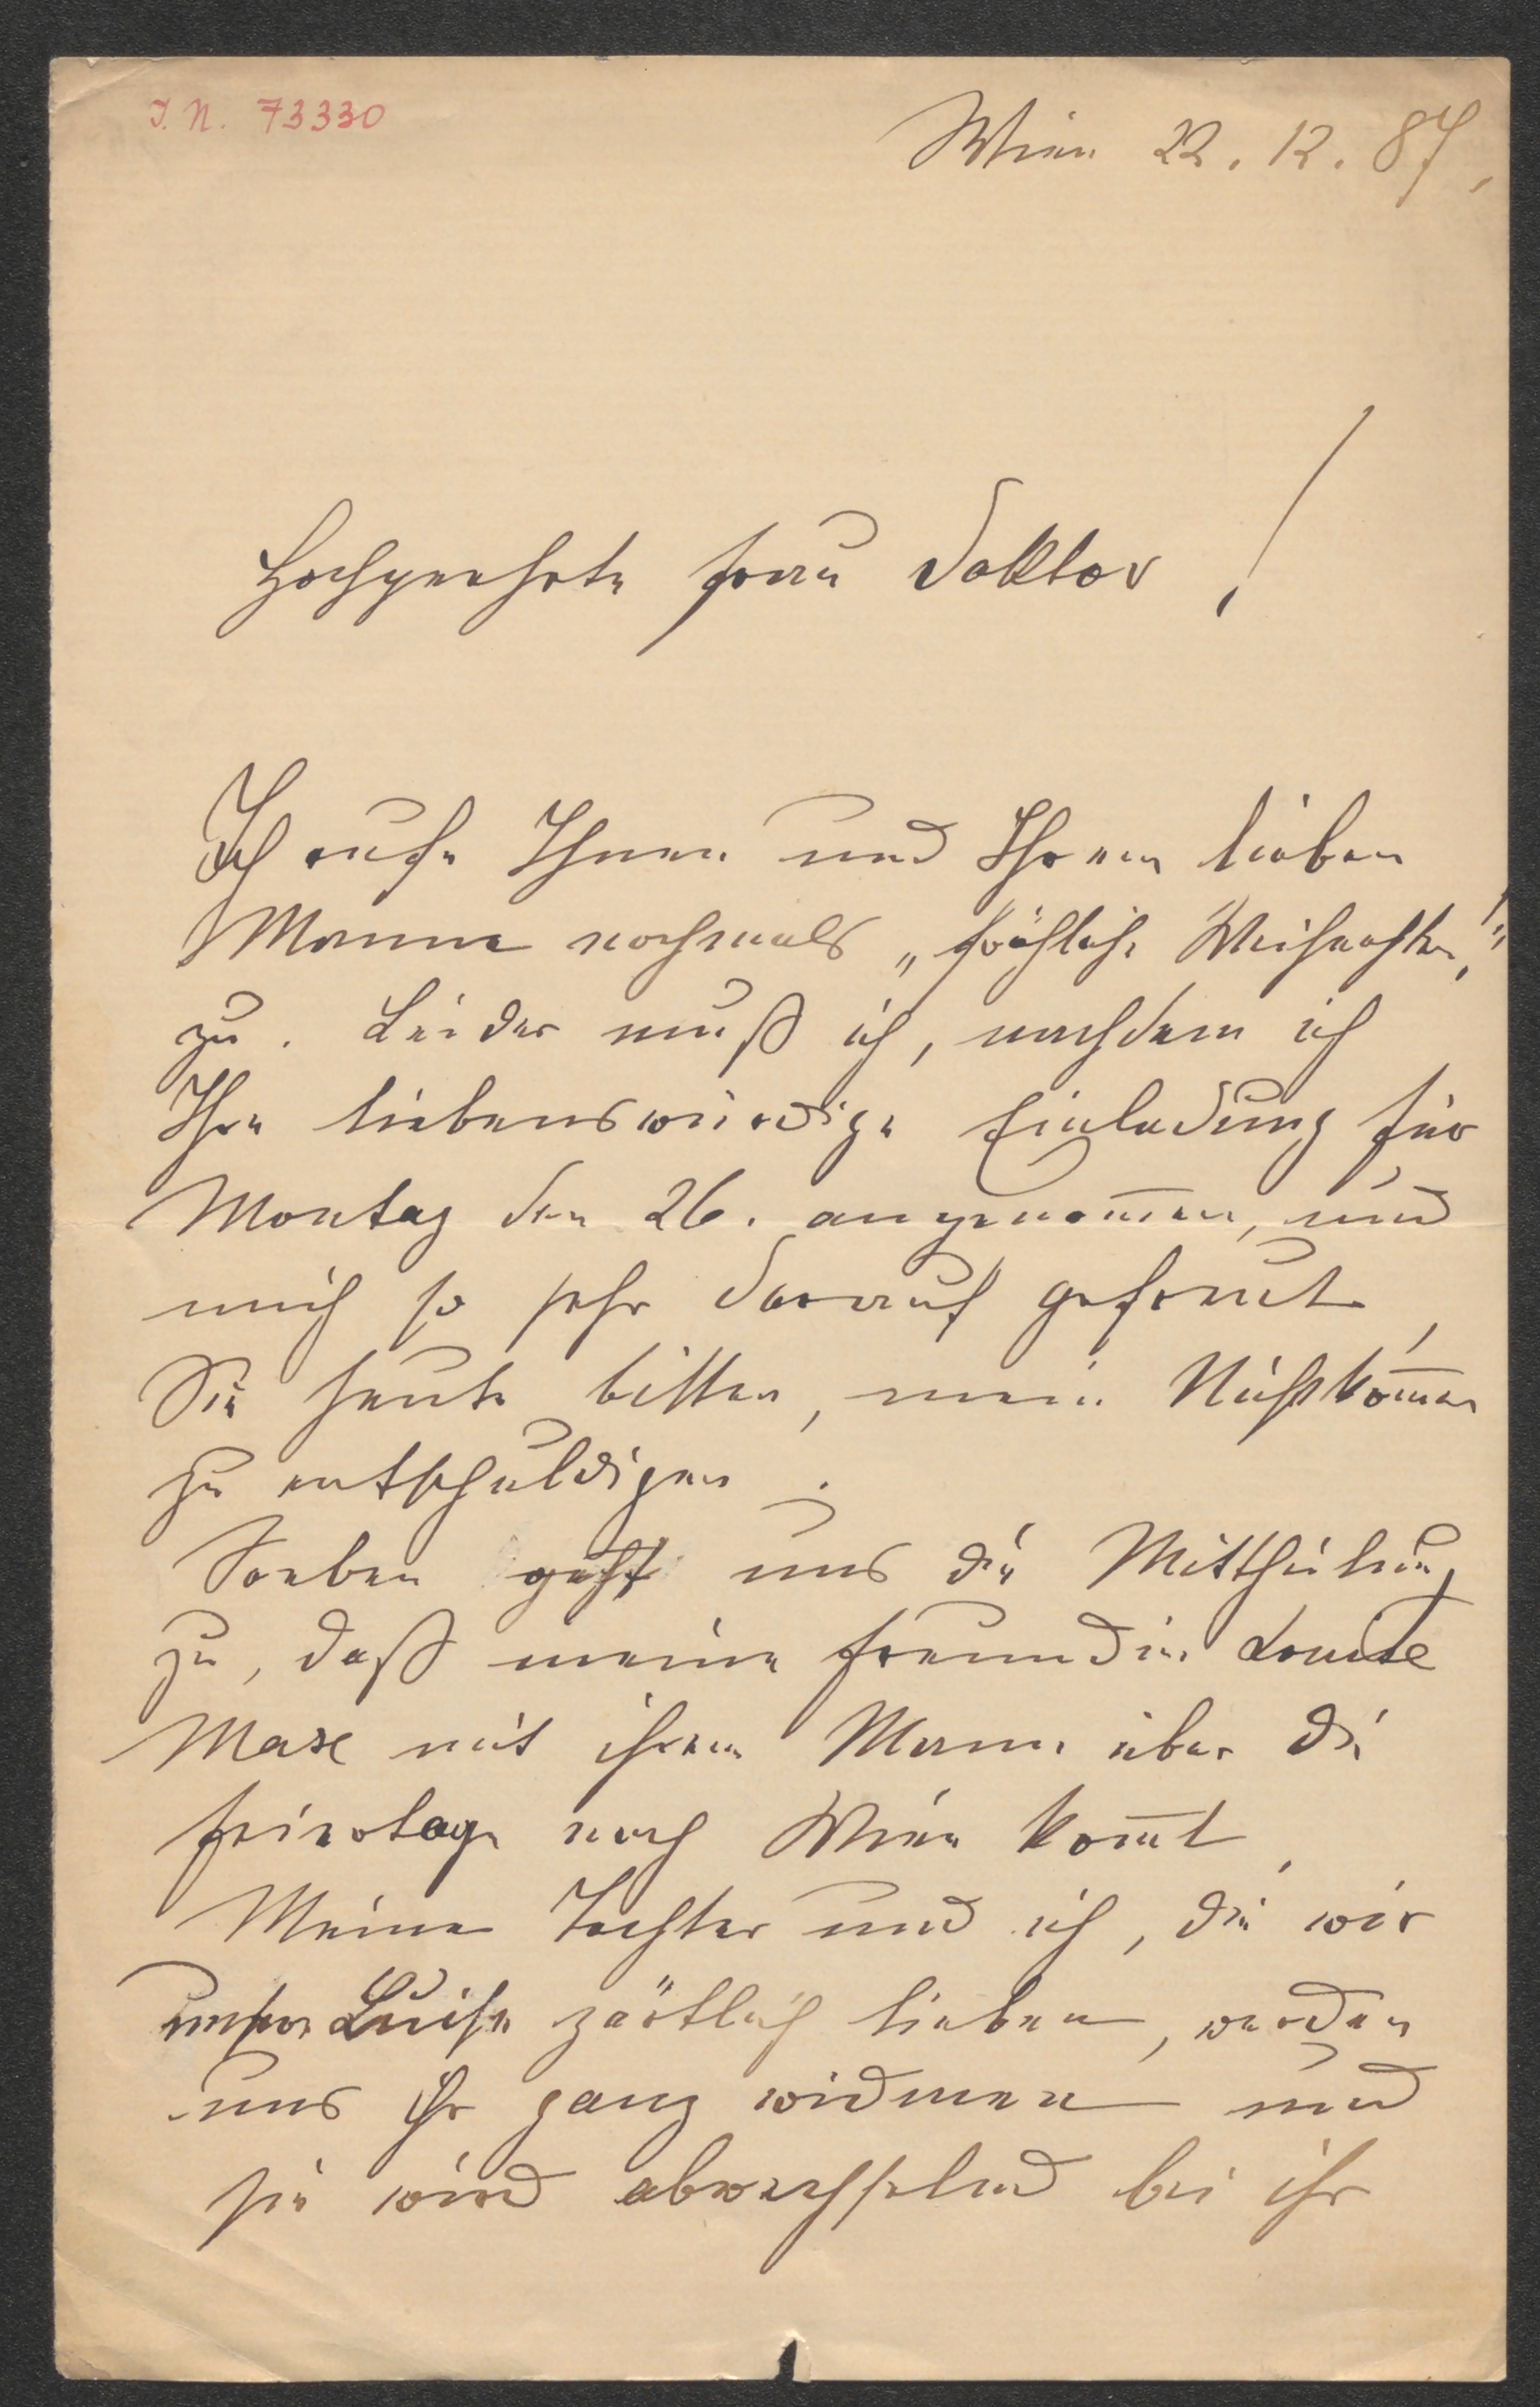 J. N. 73330
Wien 22. 12. 87.
Hochgeehrte Frau Doktor!
Ich rufe Ihnen und Ihrem lieben
Manne nochmals „fröhliche Weihnachten!“
zu. Leider muß ich, nachdem ich
Ihre liebenswürdige Einladung für
Montag den 26. angenom̄en, und
mich so sehr darauf gefreut,
Sie heute bitten, mein Nichtkom̄en
zu entschuldigen.
Soeben geht uns die Mittheilung
zu, daß meine Freundin Louise
mit ihrem Manne über die
Feiertage nach Wien kom̄t.
Meine Tochter und ich, die wir
unsere Luise zärtlich lieben, werden
uns ihr ganz widmen und
sie wird abwechselnd bei ihr